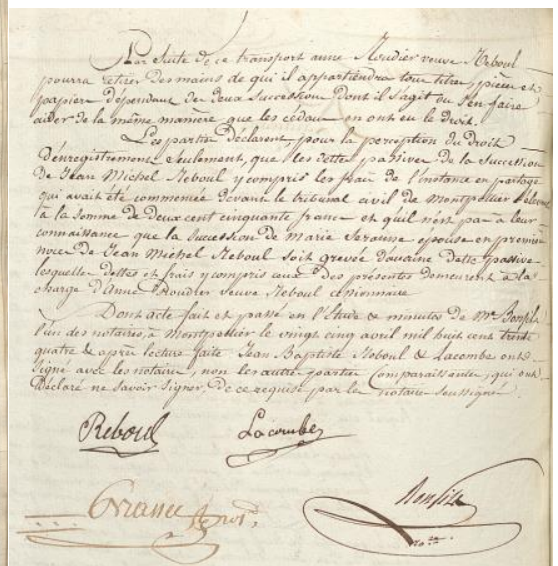 Par Suite de ce transport anne Roudier veuve Reboul
pourra retirer des mains de qui il appartiendra tous titres, pièces et
papiers dépendant des deux succession dont il s'agit ou s'en faire
aider de la même manière que les cédans en ont eu le droit.
Les parties Déclarent, pour la perception du droit
d'enregistrement Seulement, que les dettes passives de la Succession
de Jean Michel Reboul y compris les frais de l'instance en partage
qui avait été commencée devant le tribunal civil de Montpellier
à la Somme de deux cent cinquante francs et quil n'est pas à leur
connaissance que la Succession de Marie épouse en première
noce de Jean Michel Reboul soit grevée d'aucune dette passive
lesquelles dettes et frais y compris ceux des présentes demeurent à la
charge d'Anne Roudier veuve Reboul cessionnaire
Dont acte fait et passé en l'Étude & minutes de Me Bonfils
l'un des notaires, à Montpellier le vingt cinq avril mil huit cent trente
quatre & après lecture faite Jean Baptiste Reboul & Lacombe ont
Signé avec les notaires, non les autres parties Comparaissantes, qui ont
Déclaré ne savoir Signer, de ce requise par le notaire soussigné.
Reboul Lacombe
Bonfils
no.re